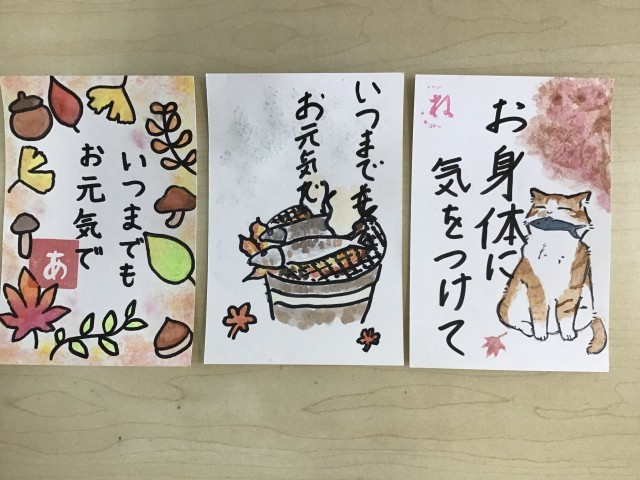 いつまでも
お元気で
あ
いつまでも
お元気で
お身体に
気をつけて
ね